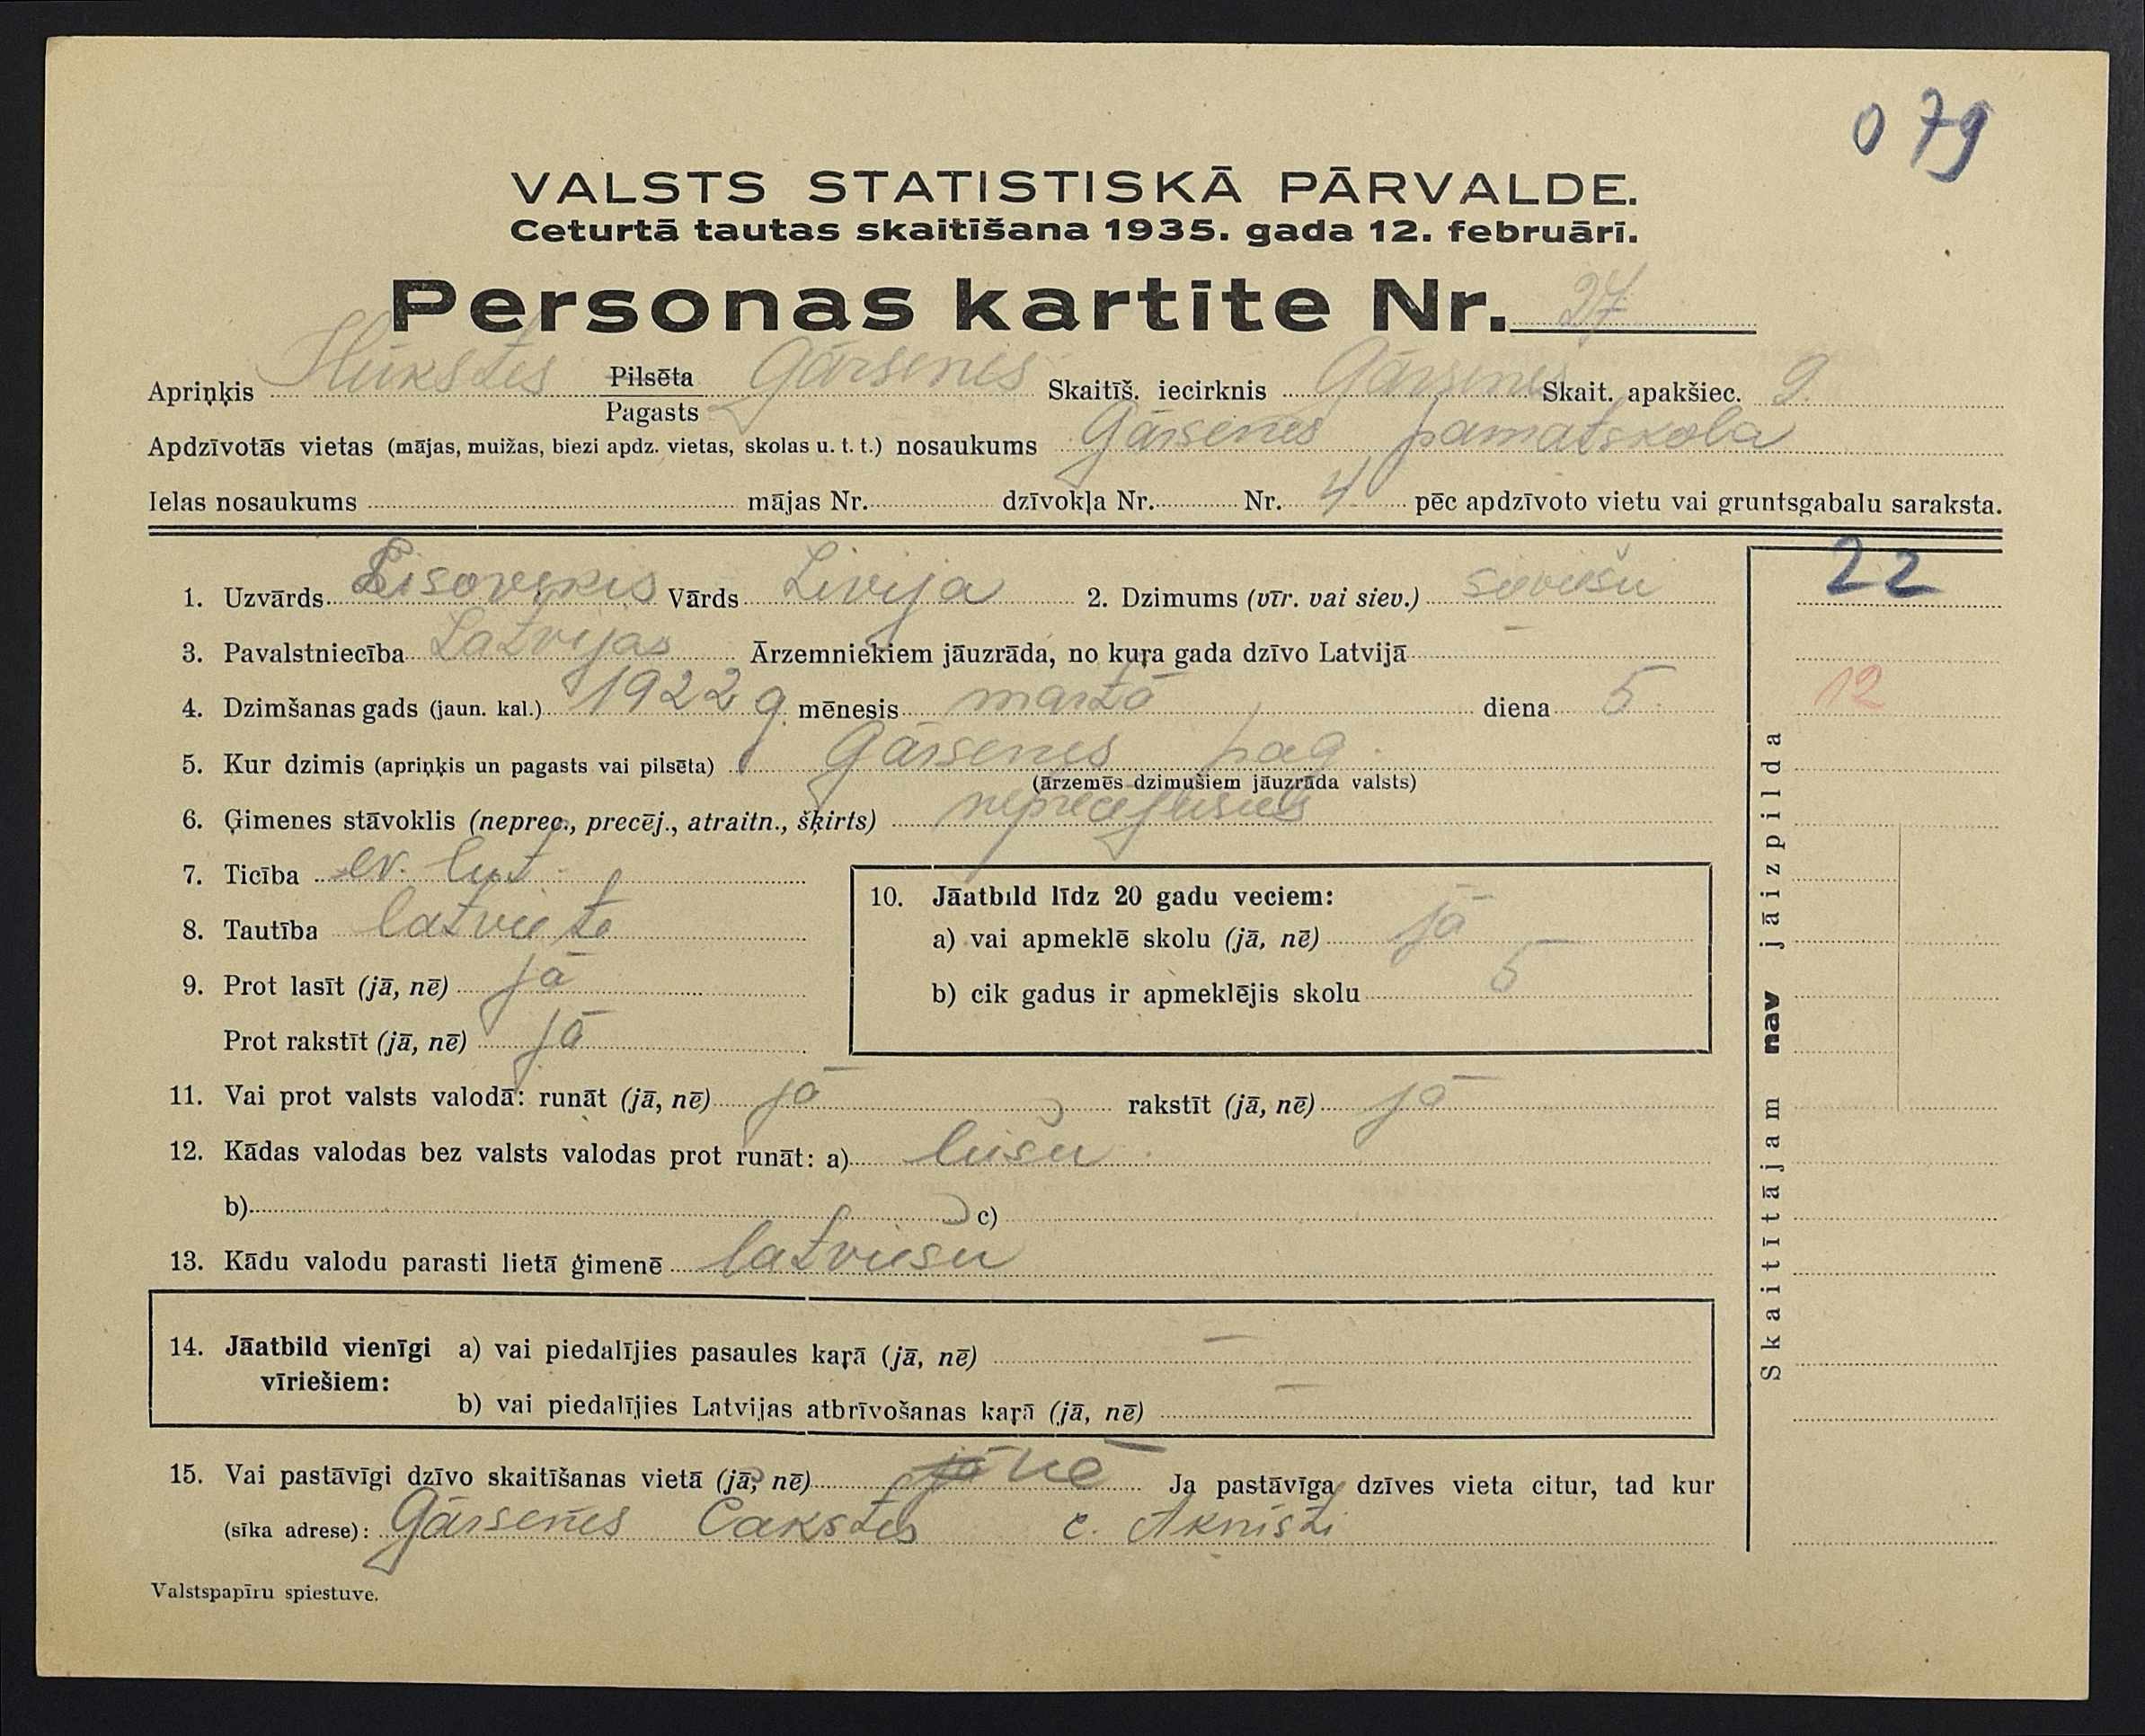 079
VALSTS STATISTISKĀ PĀRVALDE.
Ceturtā tautas skaitīšana 1935. gada 12. februārī.
Personas kartīte Nr. 27
Apriņķis Ilūkstes Pilsēta Pagasts Gārsenes Skaitīš. iecirknis Gārsenes Skait. apakšiec. 9.
Apdzīvotās vietas (mājas, muižas, biezi apdz. vietas, skolas u. t. t.) nosaukums Gārsenes pamatskola
Ielas nosaukums mājas Nr. dzīvokļa Nr. Nr. 4 pēc apdzīvoto vietu vai gruntsgabalu saraksta.
1. Uzvārds Vārds Livija 2. Dzimums (vīr. vai siev.) sieviešu 22
3. Pavalstniecība Latvijas Ārzemniekiem jāuzrāda, no kuŗa gada dzīvo Latvijā –
4. Dzimšanas gads (jaun. kal.) 1922 g. mēnesis martā diena 5. 12
5. Kur dzimis (apriņķis un pagasts vai pilsēta) Gārsenes pag.
(ārzemēs dzimušiem jāuzrāda valsts)
6. Ģimenes stāvoklis (neprec., precēj., atraitn., šķirts) neprecējusies
7. Ticība ev. lut.
8. Tautība latviete
9. Prot lasīt (jā, nē) jā
Prot rakstīt (jā, nē) jā
10. Jāatbild līdz 20 gadu veciem:
a) vai apmeklē skolu (jā, nē) jā
b) cik gadus ir apmeklējis skolu 5
11. Vai prot valsts valodā: runāt (jā, nē) jā rakstīt (jā, nē) jā
12. Kādas valodas bez valsts valodas prot runāt: a) leišu
b) c)
13. Kādu valodu parasti lietā ģimenē latviešu
14. Jāatbild vienīgi vīriešiem: a) vai piedalījies pasaules kaŗā (jā, nē) –
b) vai piedalījies Latvijas atbrīvošanas kaŗā (jā, nē) –
15. Vai pastāvīgi dzīvo skaitīšanas vietā (jā, nē) jā nē Ja pastāvīga dzīves vieta citur, tad kur
(sīka adrese): Gārsenes Čakstes c. Aknīsti
Skaitītājam nav jāizpilda
Valstspapīru spiestuve.